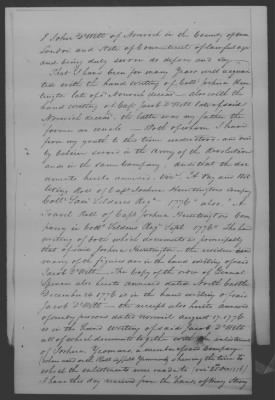 I John DeWitt of Norwich in the County of New
London and State of Connecticut of lawful age
and being duly sworn do depose and say
That I have been for many Years well acquain
ted with the hand writing of Col. Joshua Hun
tington late of Norwich deceas'd also with the
hand writing of Capt. Jacob DeWitt late of said
Norwich deceas'd, the latter was my father the
former an uncle Both of whom I have
from my youth to this time understood and
believe served in the Army of the Revolution
and in the same Company, and that the doc
uments hereto annexed Viz. A Pay and Mus
tering Roll of Capt. Joshua Huntingtons Company
Col. Saml Seldens Reg. 1776 also A
Travel Roll of Capt. Joshua Huntington Com
pany in Col. Seldens Reg. Sept. 1776 The hand
writing of both which documents is principally
that of said Joshua Huntington the
many of the figures are in the hand writing of said
Jacob DeWitt The Copy of the order of General
Spencer also hereto annexed dated North Castle
December 1776 is in the hand writing of said
Jacob DeWitt the receipt also hereto annexed
of dated Norwich August 17. 1776
is in the hand writing of said Jacob DeWitt
all of which documents together with the
of Joshua Yeomans, a member of said Company
showing the time to
which the enlistments were made to
I have this day received from the hands of